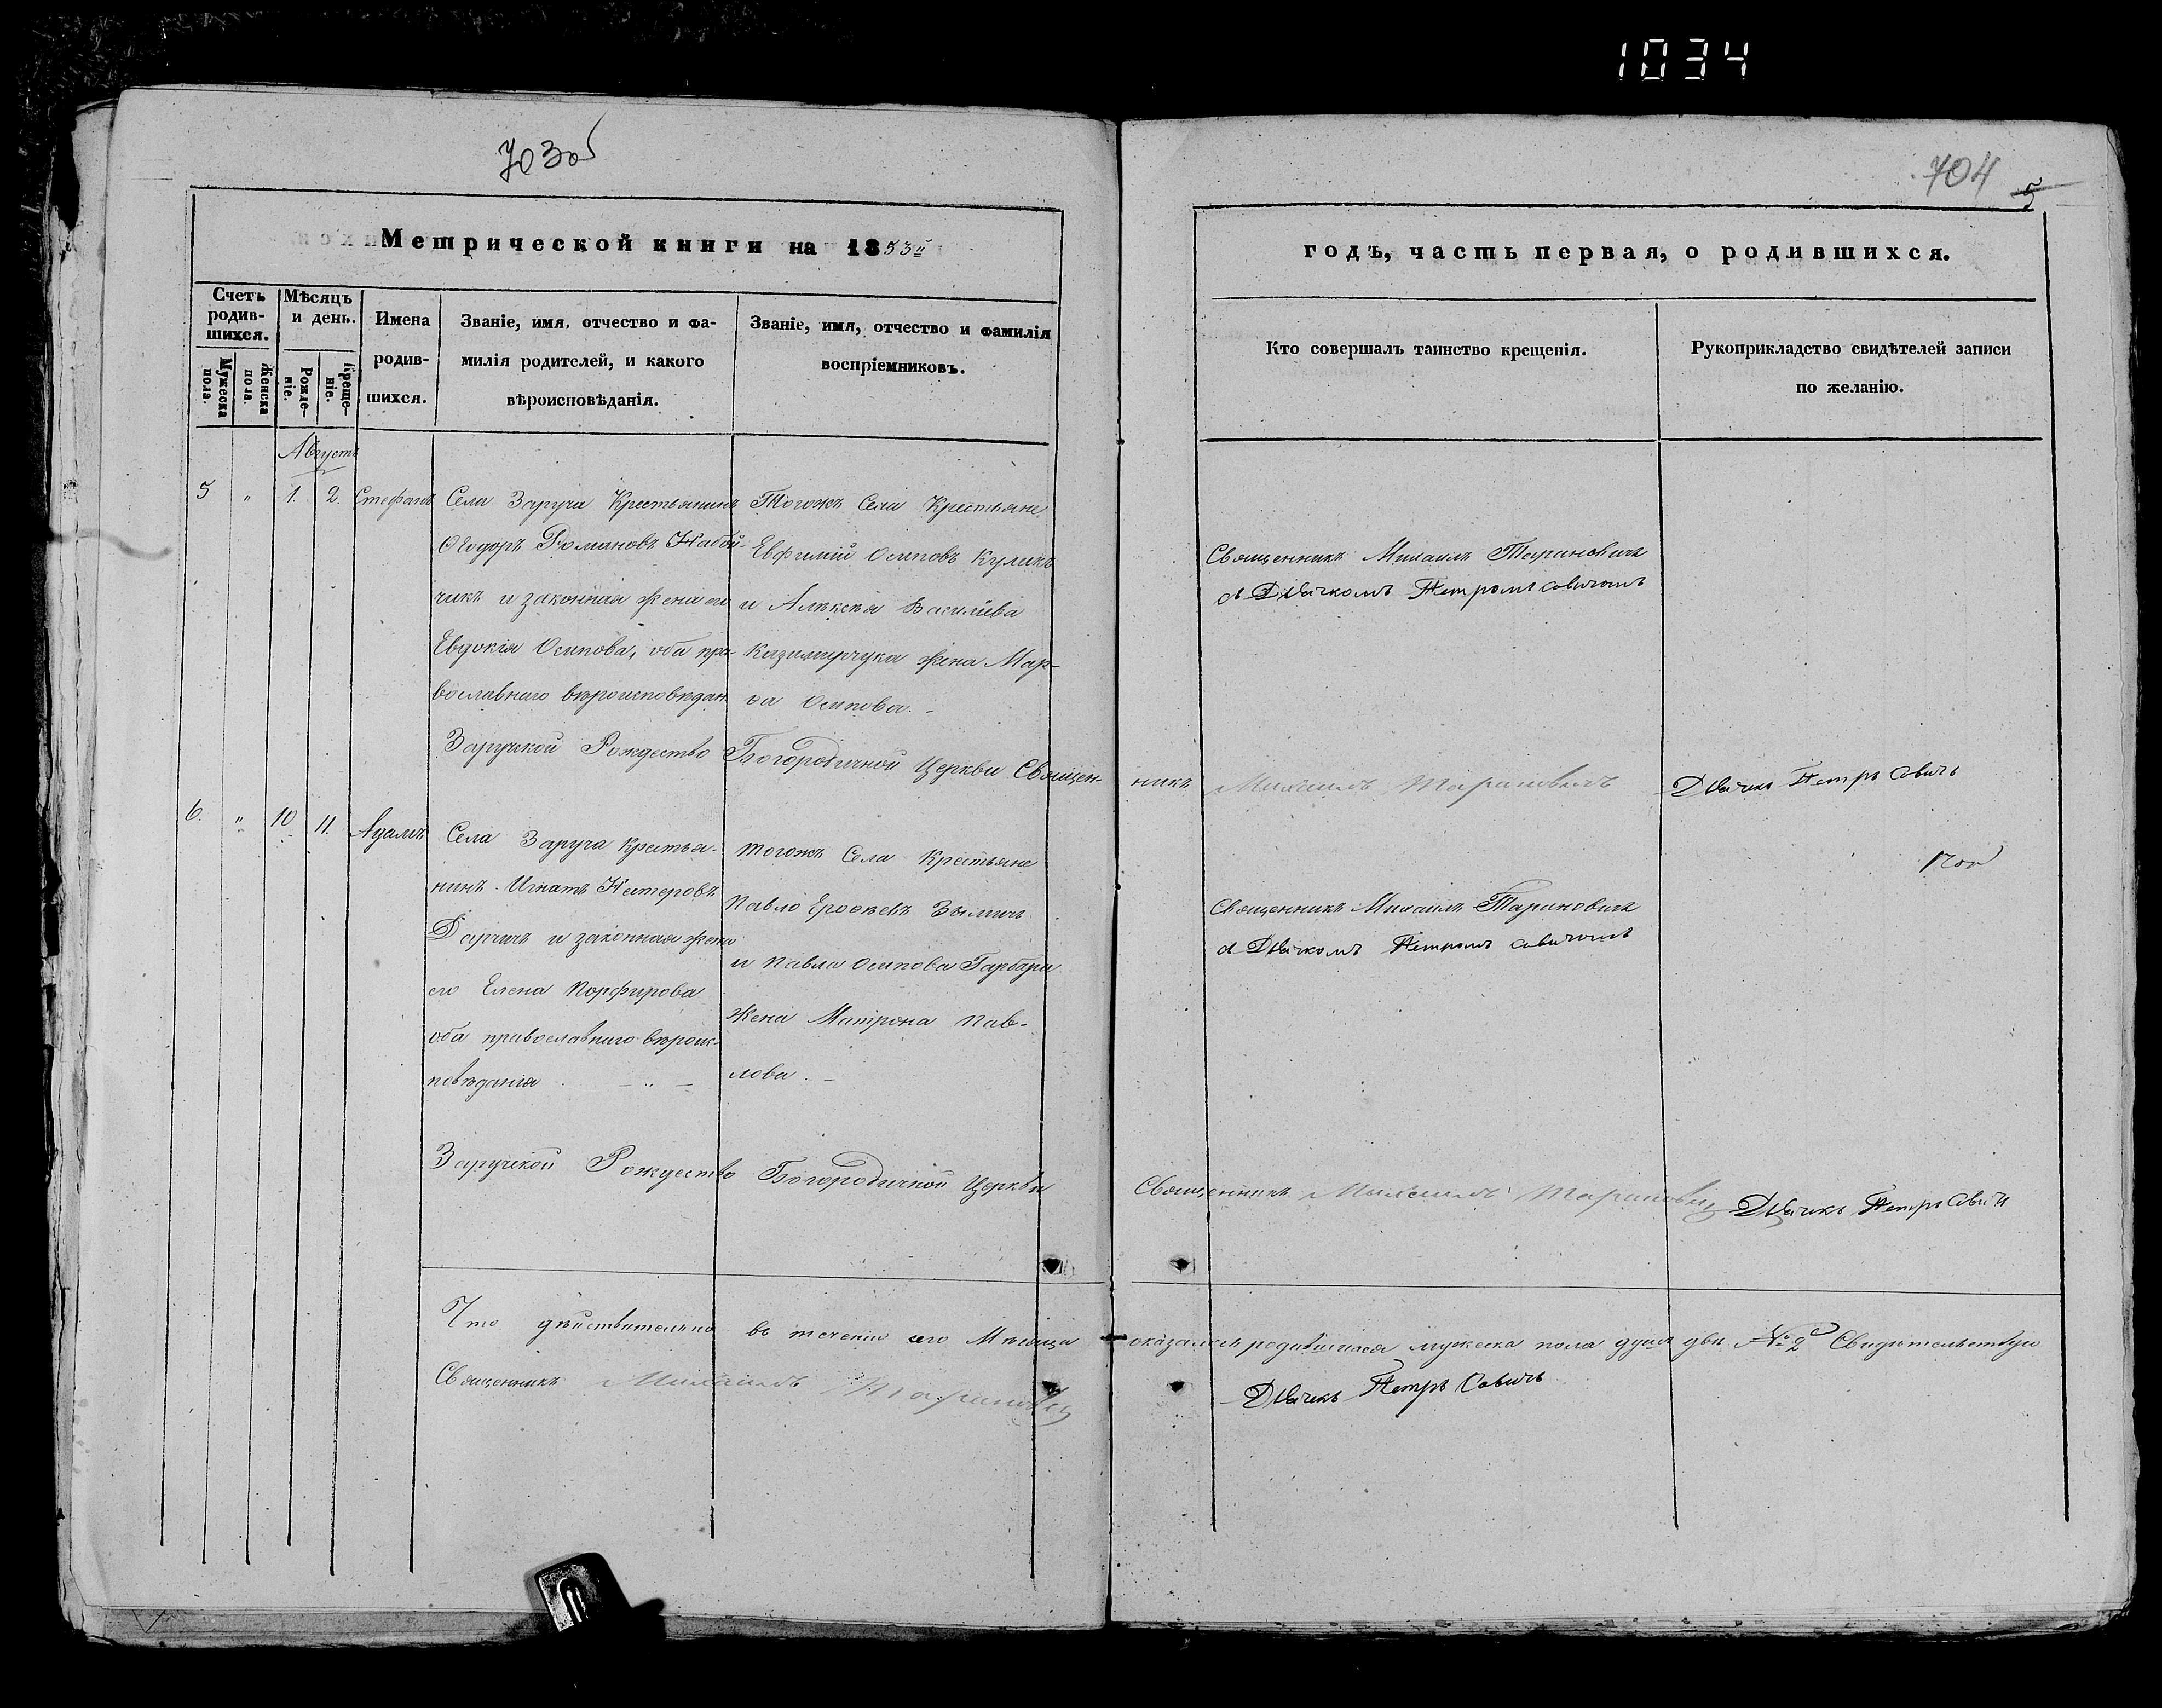 1034
703об
704
5
Метрической книги на 1853й
годъ, часть первая, о родившихся.
Счетъ родившихся.
Мужеска пола.
Женска пола.
Мѣсяцъ и день.
Рожденіе.
Крещеніе.
Имена родившихся.
Званіе, имя, отчество и фамилія родителей, и какого вѣроисповѣданія.
Званіе, имя, отчество и фамилія воспріемниковъ.
Кто совершалъ таинство крещенія.
Рукоприкладство свидѣтелей записи по желанію.
Августъ
5 " 1. 2. Стефанъ
Села Заруча Крестьянинъ
Ѳеодоръ Романовъ
чикъ и законная жена его
Евдокія Осипова, оба пра-
вославнаго вѣроисповѣдан.
Тогожъ Села Крестьяне
Евфимій Осиповъ Куликъ
и Алексѣя Василіева
Казимирчука жена Мар-
ѳа Осипова. -
Священникъ Михаилъ Тариновичъ
съ Дьячкомъ Петромъ Савичомъ
Заручской Рождество Богородичной Церкви Священ-
никъ Михаилъ Тариновичъ
Дьячекъ Петръ Савичъ
6. " 10 11. Адамъ
Села Заруча Крестья-
нинъ Игнатъ Нестеровъ
и законная жена
его Елена Порфирова
оба православнаго вѣроис-
повѣданія . — „ —
тогожъ Села Крестьяне
Павло
и Павла Осипова Гарбара
жена Матрона Пав-
лова. -
Священникъ Михаилъ Тариновичъ
съ Дьячкомъ Петромъ Савичомъ
Заручской Рождество Богородичной Церкви
Священникъ Михаилъ Тариновичъ
Дьячекъ Петръ Савичъ
Что дѣйствительно въ теченіи сего Мѣсяца оказалось родившихся мужеска пола душъ двѣ № 2 Свидѣтельствую
Священникъ Михаилъ Тариновичъ
Дьячекъ Петръ Савичъ